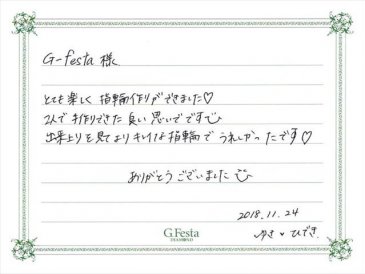 G-festa 様
とても楽しく 指輪作りができました♡
2人で手作りできた 良い思いでです
出来上りを見てよりキレイな指輪で うれしかったです♡
ありがとうございました
2018.11.24
ゆき ♥ ひでき
G.Festa
DIAMOND